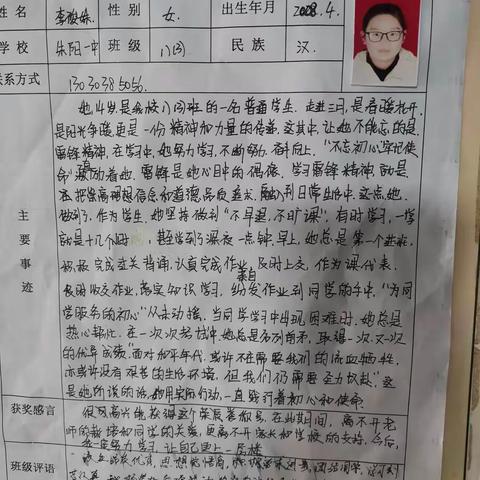 姓名 李 性别 女. 出生年月 2008.4.
学校 朱阳一中 班级 八(3) 民族 汉.
联系方式 13030385056.
她 是我校八(3)班的一名普通学生. 走进三月,是春暖花开,
是阳光争暖,更是一份精神和力量的传递,这其中,让她不能忘的是
雷锋精神,在学习中,她努力学习,不断努力,奋斗向上."不忘初心,牢记使
命"激励着她. 雷锋是她心目中的偶像,学习雷锋精神,就是
要把崇高理想信念和道德品质追求,融入到日常生活中,这点,她
做到了,作为学生,她坚持做到"不早退,不旷课",有时学习,一学
就是十几个小时,甚至学到了深夜一点钟,早上,她总是第一个进班,
积极完成老师背诵,认真完成作业,及时上交,作为课代表,
及时收交作业,落实知识学习,纷发作业到同学的手中,"为同
学服务的初心"从未动摇.当同学学习中出现困难时,她总是
热心帮忙.在一次次考试中,她总是名列前茅,取得一次又一次
的优异成绩"面对和平年代,或许不在需要我们的流血牺牲,
亦或许没有艰苦的生活环境,但我们仍需要奋力砍起"这
是她所说的话,她用实际行动,一直践行着初心和使命.
主要事迹
获奖感言
很高兴能获得这个荣誉称号,在此期间,离不开老
师的教育和同学的关爱,更离不开家长和学校的支持,今后,
一定努力学习,让自己更上一层楼.
班级评语